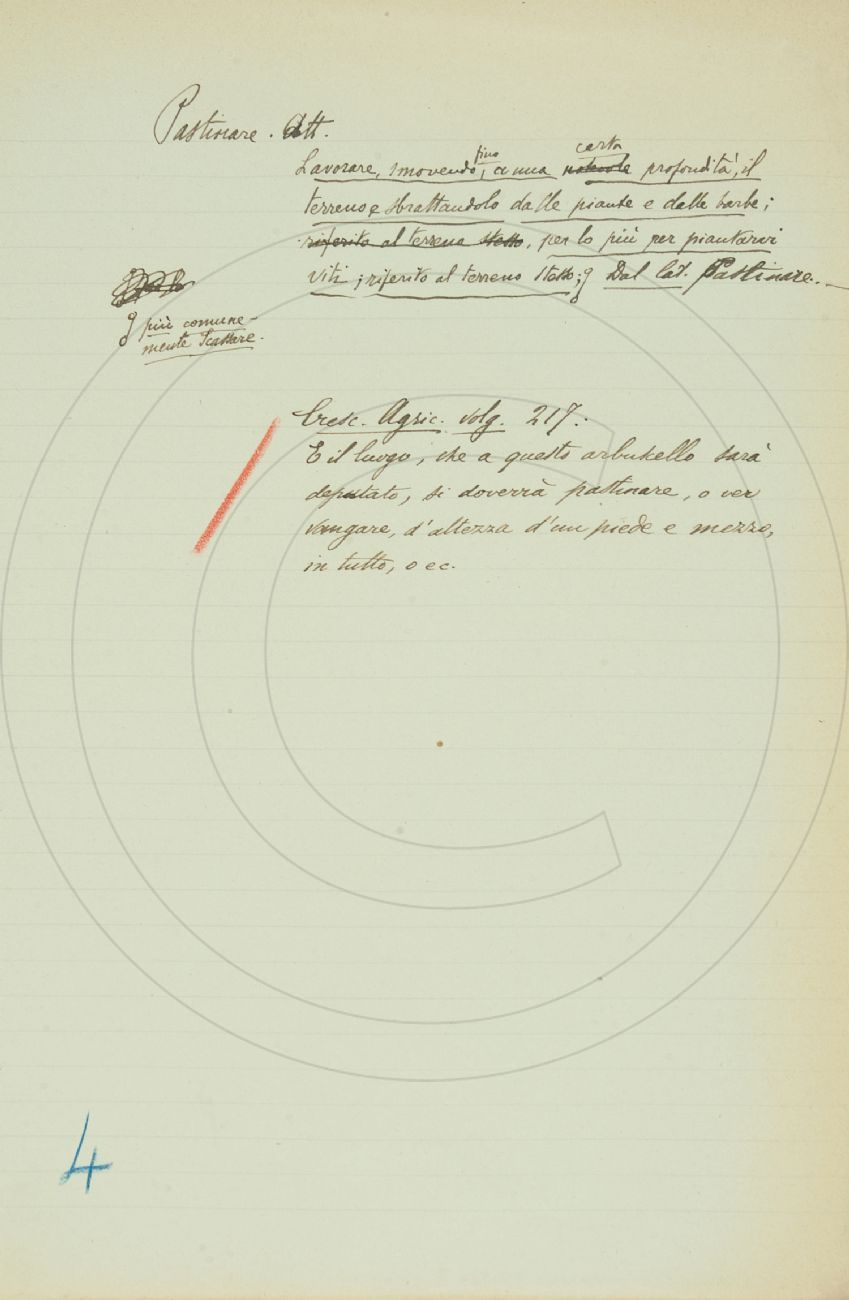 Pastinare. Att.
fino certa
Lavorare, smovendo, a una notevole profondità, il
terreno e sbrattandolo dalle piante e dalle barbe;
riferito al terreno stesso, per lo più per piantarvi
viti; riferito al terreno stesso; Dal lat. Pastinare.
più comune-
mente Scassare.
Cresc. Agric. volg. 217:
E il luogo, che a questo arbuscello sarà
deputato, si doverrà pastinare, o ver
vangare, d'altezza d'un piede e mezzo,
in tutto, o ec.
4